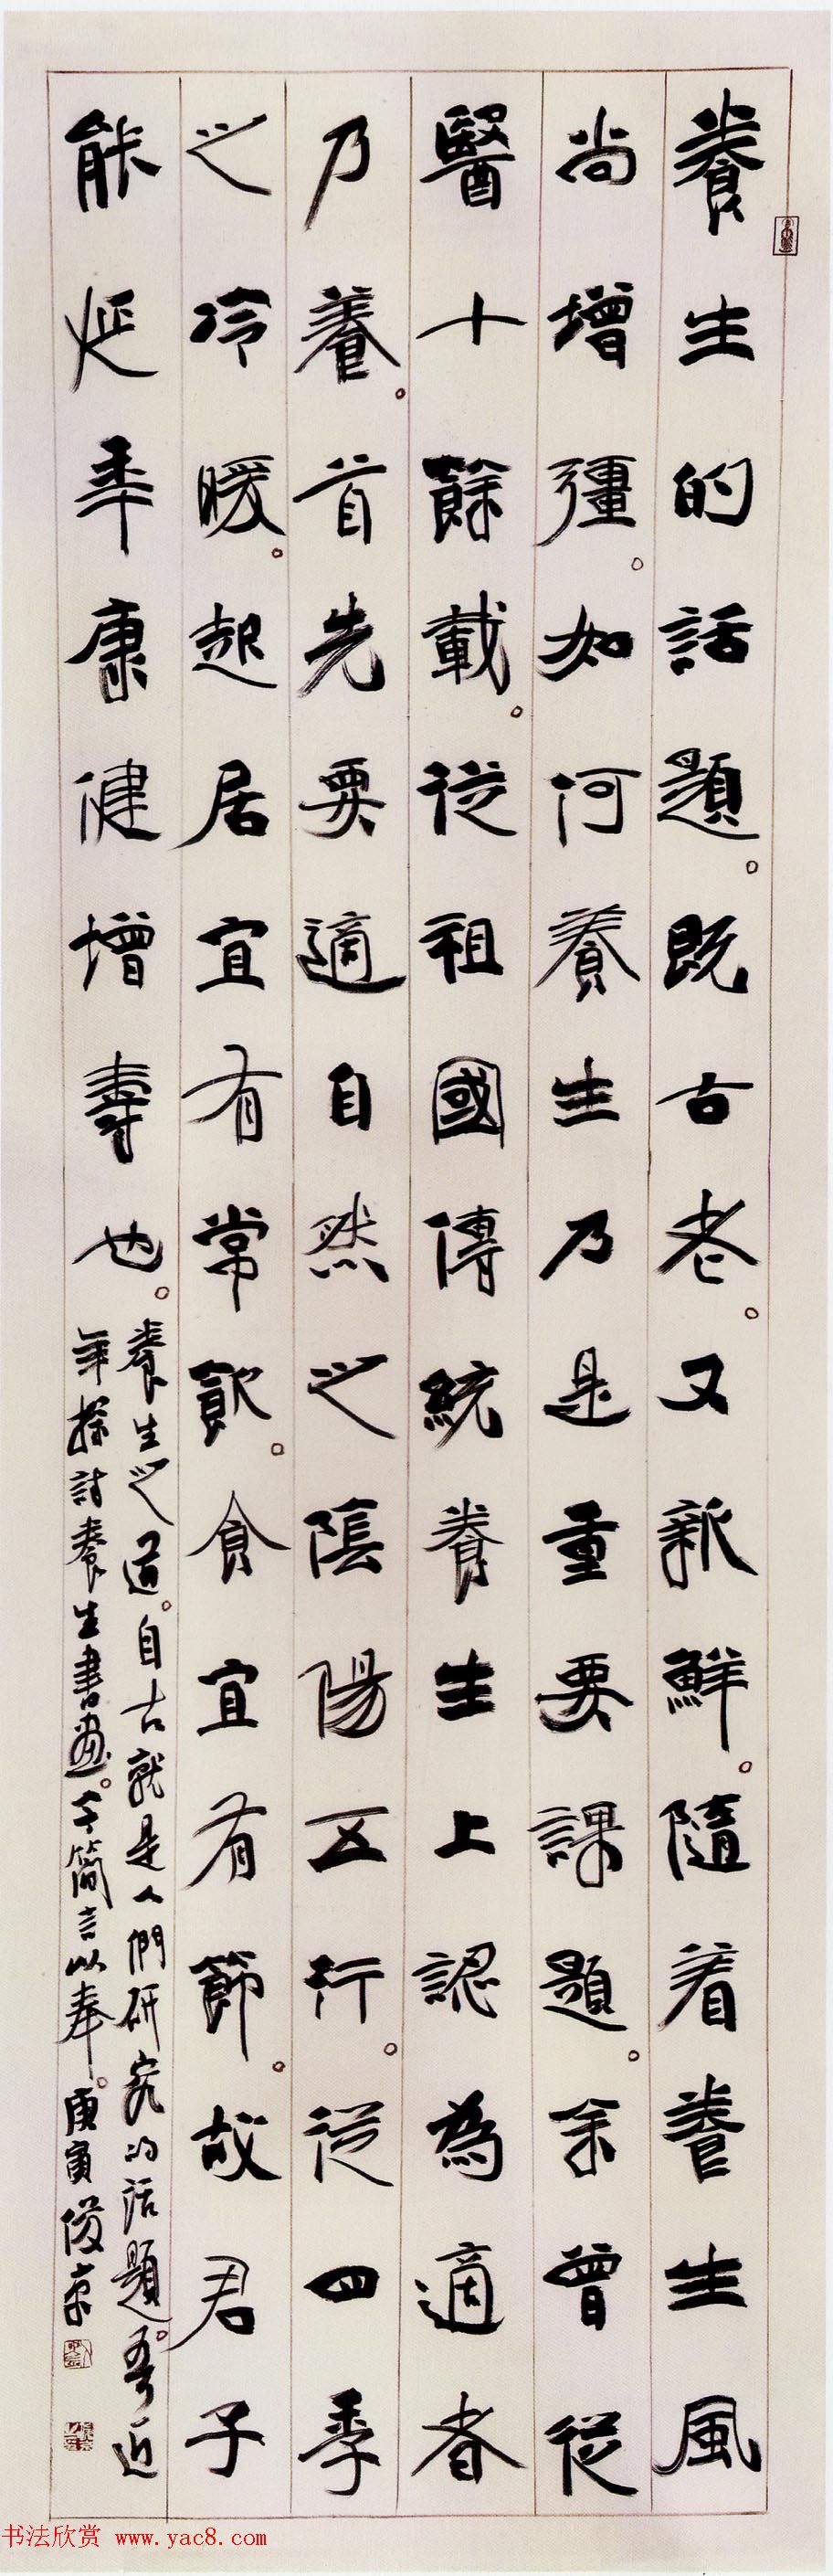 養生的話題。既古老。又新鮮。隨着養生風
尚增彊。如何養生乃是重要課題。余曾從
醫十餘載。從祖國傳統養生上認為適者
乃養。首先要適自然之陰陽五行。從四季
之冷暖。起居宜有常飲。食宜有節。故君子
能延年康健增壽也。
養生之道。自古就是人們研究的話題。吾近
年探討養生書畫。予簡言以奉。庚寅俊京
书法欣赏 www.yac8.com